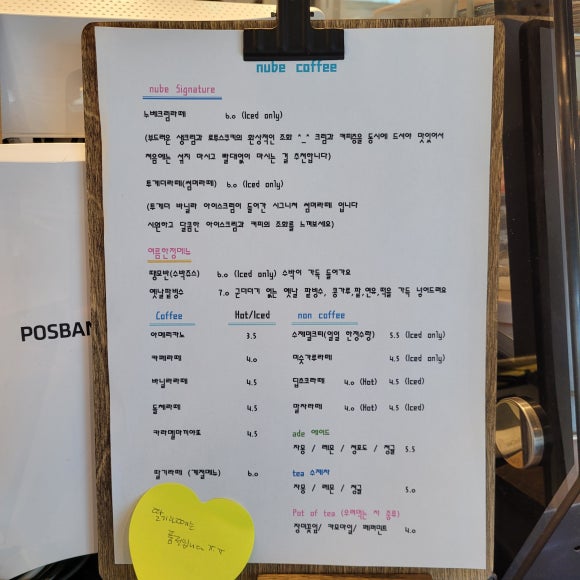 nube coffee
nube Signature
누베크림라떼 6.0 (Iced only)
(부드러운 생크림과 로투스쿠키의 환상적인 조화 ^_^ 크림과 커피층을 동시에 드셔야 맛있어서
처음에는 섞지 마시고 빨대없이 마시는 걸 추천합니다)
투게더라떼(썸머라떼) 6.0 (Iced only)
(투게더 바닐라 아이스크림이 들어간 시그니처 썸머라떼 입니다
시원하고 달콤한 아이스크림과 커피의 조화를 느껴보세요)
여름한정메뉴
땡모반(수박쥬스) 6.0 (Iced only) 수박이 가득 들어가요
옛날팥빙수 7.0 근더더기 없는 옛날 팥빙수, 콩가루,팥,연유,떡을 가득 넣어드려요
Coffee Hot/Iced non coffee
아메리카노 3.5 수제밀크티(일일 한정수량) 5.5 (Iced only)
카페라떼 4.0 미숫가루라떼 4.5 (Iced only)
바닐라라떼 4.5 딥초코라떼 4.0 (Hot) 4.5 (Iced)
돌체라떼 4.5 말차라떼 4.0 (Hot) 4.5 (Iced)
카라멜마끼아또 4.5 ade 에이드
자몽 / 레몬 / 청포도 / 청귤 5.5
딸기라떼 (계절메뉴) 6.0 tea 수제차
자몽 / 레몬 / 청귤 5.0
Pot of tea (우려먹는 차 종류)
장미꽃잎/ 카모마일/ 페퍼민트 4.0
딸기라떼는
품절입니다 ㅠㅠ
POSBAN